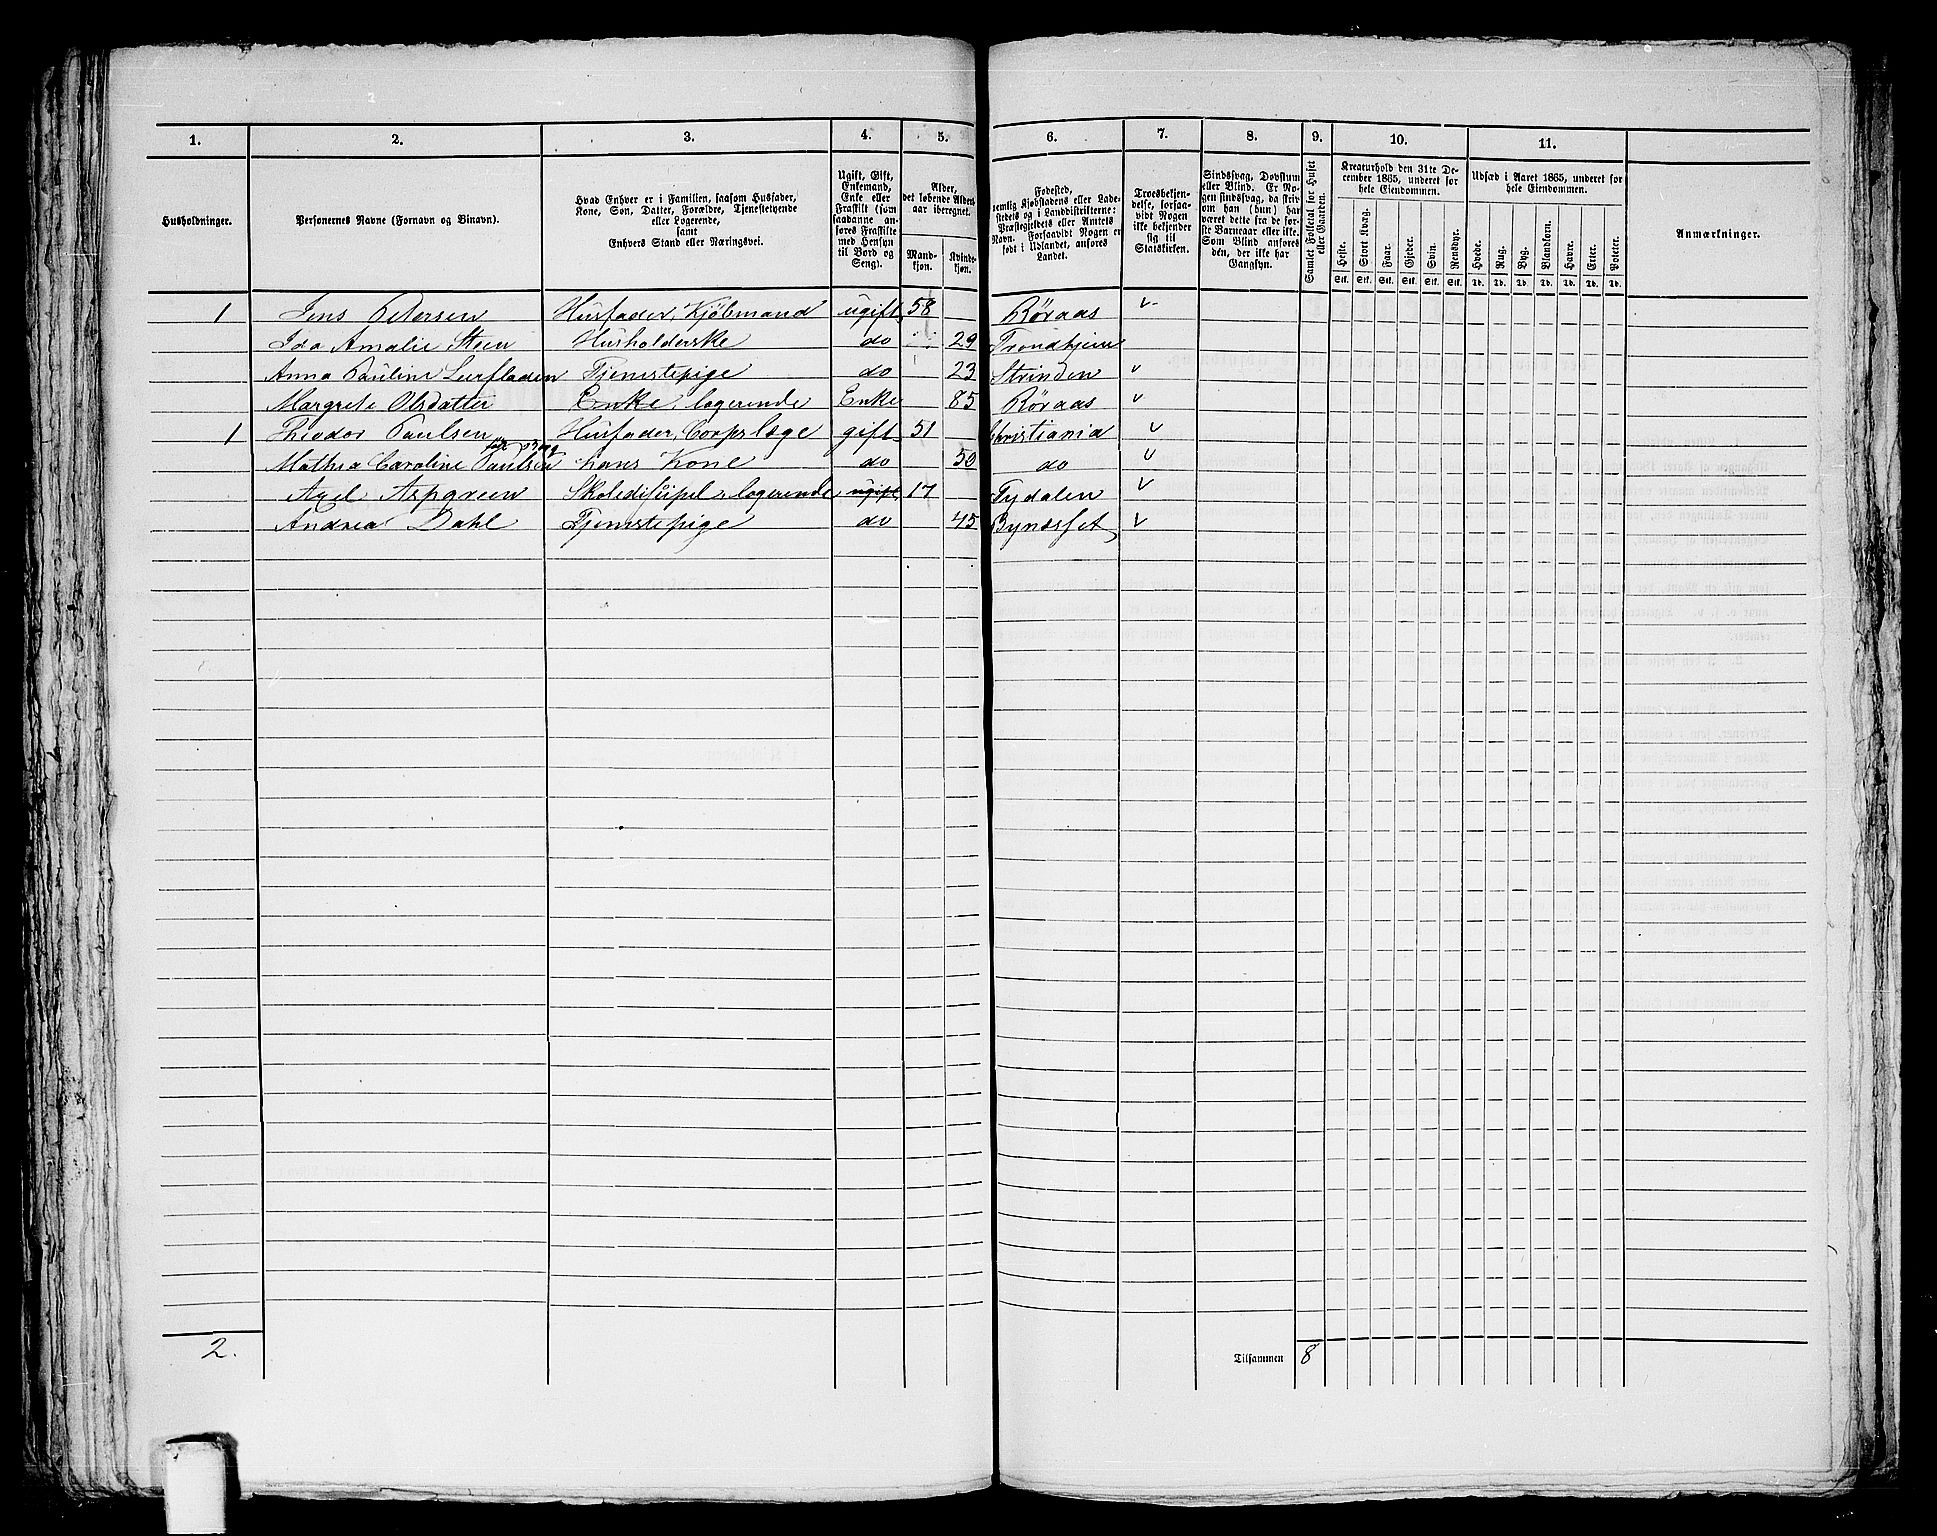 1. 2. 3. 4. 5. 6. 7. 8. 9. 10. 11.
Husholdninger.
Personernes Navne (Fornavn og Binavn).
Hvad Enhver er i Familien, saasom Husfader,
Kone, Søn, Datter, Forældre, Tjenestetyende
eller Logerende,
samt
Enhvers Stand eller Næringsvei.
Ugift, Gift,
Enkemand,
Enke eller
Fraskilt (som
saadanne an-
føres Fraskilte
med Hensyn
til Bord og
Seng).
Alder,
det løbende Alders-
aar iberegnet.
Mand-
kjøn.
Kvinde-
kjøn.
Fødested,
nemlig Kjøbstadens eller Lade-
stedets og i Landdistrikterne:
Præstegjeldets eller Amtets
Navn. Forsaavidt Nogen er
født i Udlandet, anføres
Landet.
Troesbekjen-
delse, forsaa-
vidt Nogen
ikke bekjender
sig til
Statskirken.
Sindssvag, Døvstum
eller Blind. Er No-
gen sindssvag, da skriv
om han (hun) har
været dette fra de før-
ste Barneaar eller ikke.
Som Blind anføres
den, der ikke har
Gangsyn.
Samlet Folketal for Huset
eller Gaarden.
Kreaturhold den 31te De-
cember 1865, underet for
hele Eiendommen.
Heste. Stort Kvæg. Faar. Gjeder. Svin. Rensdyr.
Stk. Stk. Stk. Stk. Stk. Stk.
Udsæd i Aaret 1865, underet for
hele Eiendommen.
Hvede. Rug. Byg. Blandkorn. Havre. Erter. Poteter.
Td. Td. Td. Td. Td. Td. Td.
Anmærkninger.
1 Jens Petersen Husfader, Kjøbmand ugift 58 Røraas
Ida Amalie Steen Husholderske do 29 Trondhjem
Anna Pauline Leerfladen Tjenestepige do 23 Strinden
Margrete Olsdatter Enke, logerende Enke 85 Røraas
1 Theodor Paulsen Husfader, Corpslæge gift 51 Christiania
Mathea Caroline Paulsen hans Kone do 50 do
Axel Aspgreen Skoledisipel, logerende ugift 17 Tydalen
Andrea Dahl Tjenestepige do 45 Bynæsset
2.
Tilsammen 8